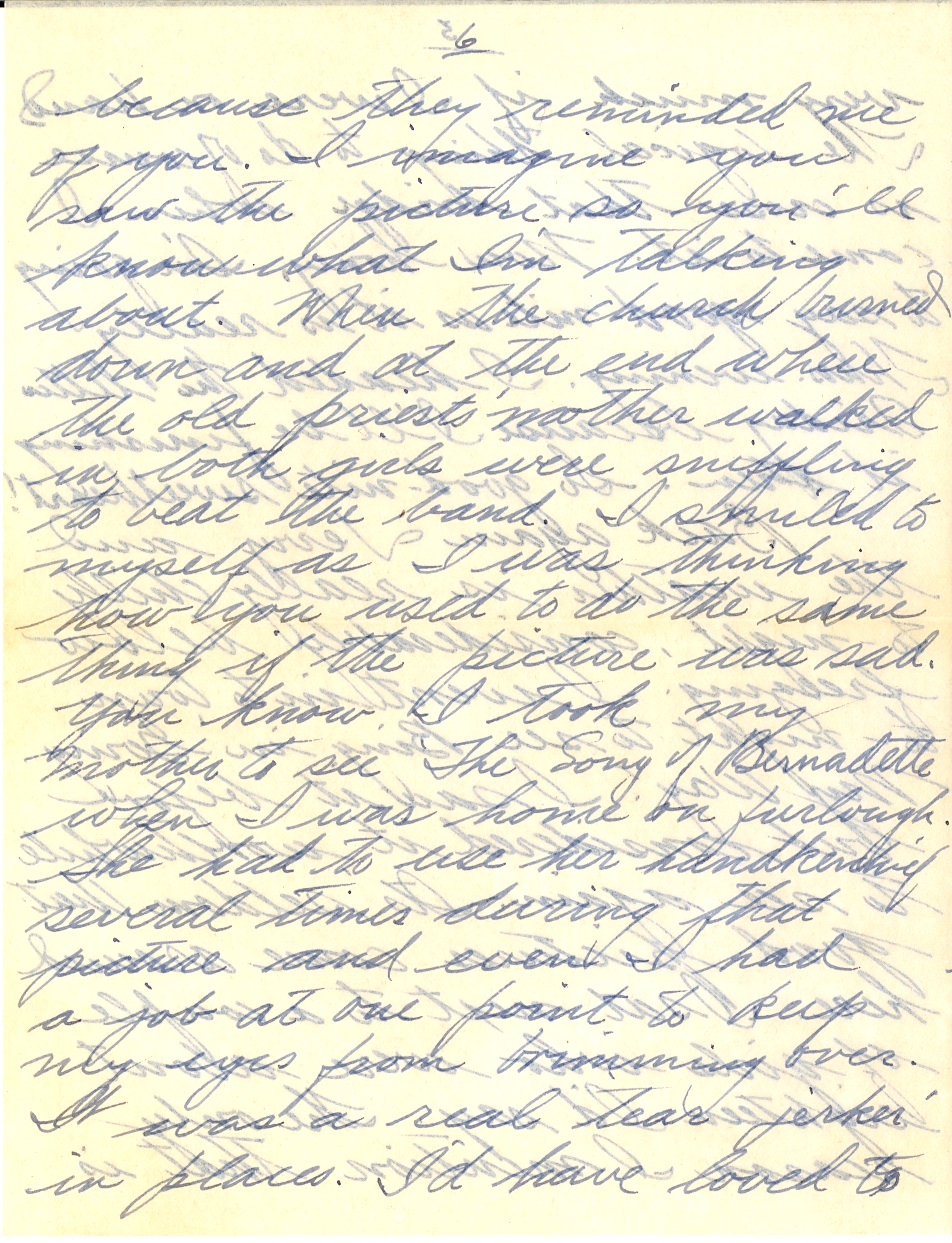 6
because they reminded me
of you. I imagine you
saw the picture so you'll
know what I'm talking
about. When the church burned
down and at the end where
the old priests' mother walked
in, both girls were sniffling
to beat the band. I smiled to
myself as I was thinking
how you used to do the same
thing if the picture was sad.
You know I took my
mother to see "The Song of Bernadette
when I was home on furlough.
She had to use her handkerchief
several times during that
picture and even I had
a job at one point to keep
my eyes from brimming over.
It was a real "tear jerker"
in places. I'd have loved to